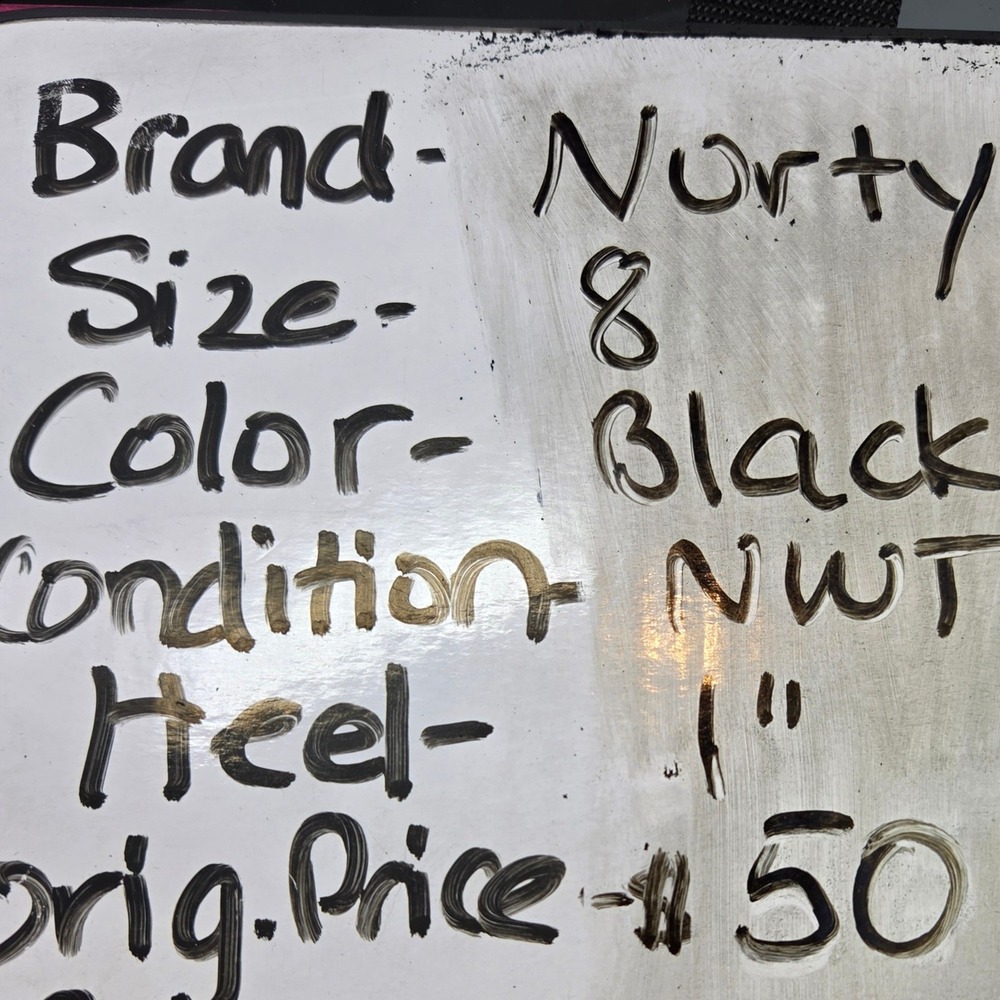 Brand- Norty
Size- 8
Color- Black
Condition- NWT
Heel- 1"
Orig. Price - $50